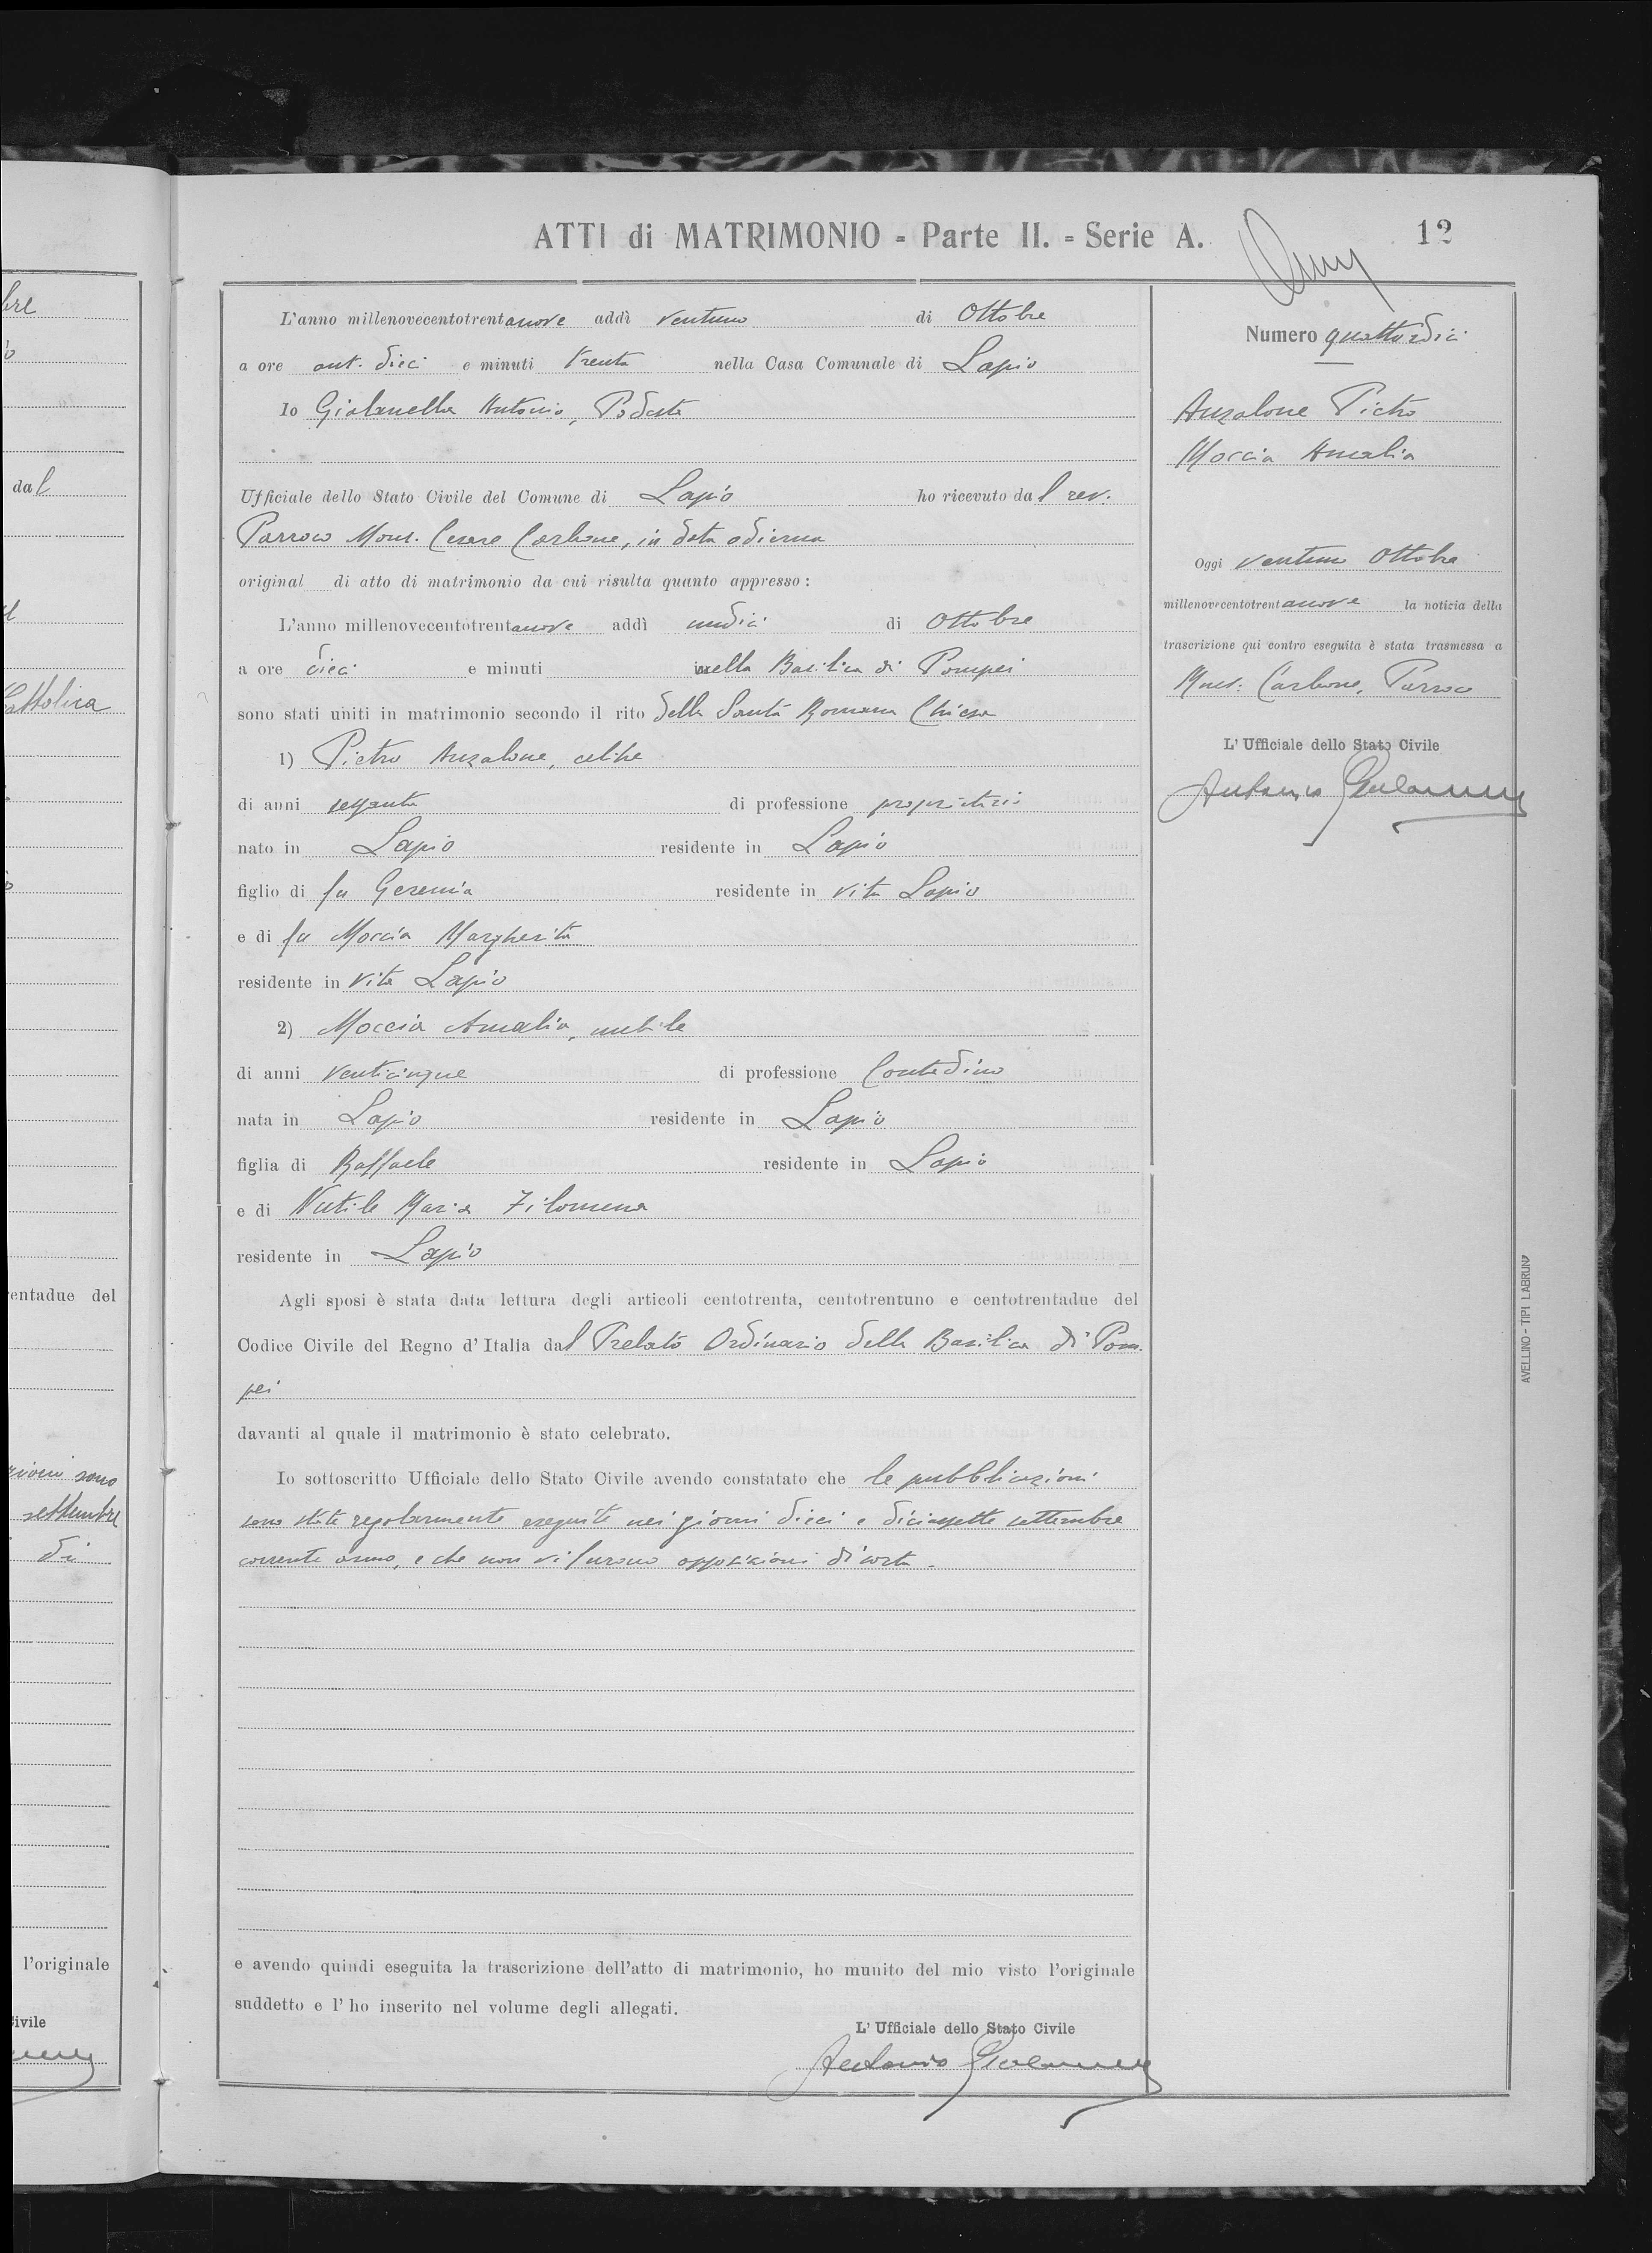 ATTI di MATRIMONIO - Parte II. - Serie A.
12
L'anno millenovecentotrentanove addì ventuno di Ottobre
a ore ant. dieci e minuti trenta nella Casa Comunale di Lapio
Io Giolanella Antonio, Podestà
Ufficiale dello Stato Civile del Comune di Lapio ho ricevuto dal rev.
Parroco Mons. Cesare Carbone, in data odierna
original di atto di matrimonio da cui risulta quanto appresso:
L'anno millenovecentotrentanove addì undici di Ottobre
a ore dieci e minuti nella Basilica di Pompei
sono stati uniti in matrimonio secondo il rito della Santa Romana Chiesa
1) Pietro Anzalone, celibe
di anni sessanta di professione proprietario
nato in Lapio residente in Lapio
figlio di fu Geremia residente in vita Lapio
e di fu Moccia Margherita
residente in vita Lapio
2) Moccia Amalia, nubile
di anni venticinque di professione Contadina
nata in Lapio residente in Lapio
figlia di Raffaele residente in Lapio
e di Nutile Maria Filomena
residente in Lapio
Agli sposi è stata data lettura degli articoli centotrenta, centotrentuno e centotrentadue del
Codice Civile del Regno d'Italia dal Prelato Ordinario della Basilica di Pom-
pei
davanti al quale il matrimonio è stato celebrato.
Io sottoscritto Ufficiale dello Stato Civile avendo constatato che le pubblicazioni
sono state regolarmente eseguite nei giorni dieci e diciassette settembre
corrente anno, e che non vi furono opposizioni di sorta.
e avendo quindi eseguita la trascrizione dell'atto di matrimonio, ho munito del mio visto l'originale
suddetto e l'ho inserito nel volume degli allegati.
L'Ufficiale dello Stato Civile
Antonio Giolanella
Numero quattordici
Anzalone Pietro
Moccia Amalia
Oggi ventuno Ottobre
millenovecentotrentanove la notizia della
trascrizione qui contro eseguita è stata trasmessa a
Mons. Carbone, Parroco
L'Ufficiale dello Stato Civile
Antonio Giolanella
AVELLINO - TIPI LABRUNO
bre
dal
Cattolica
entadue del
zioni sono
settembre
di
l'originale
ivile